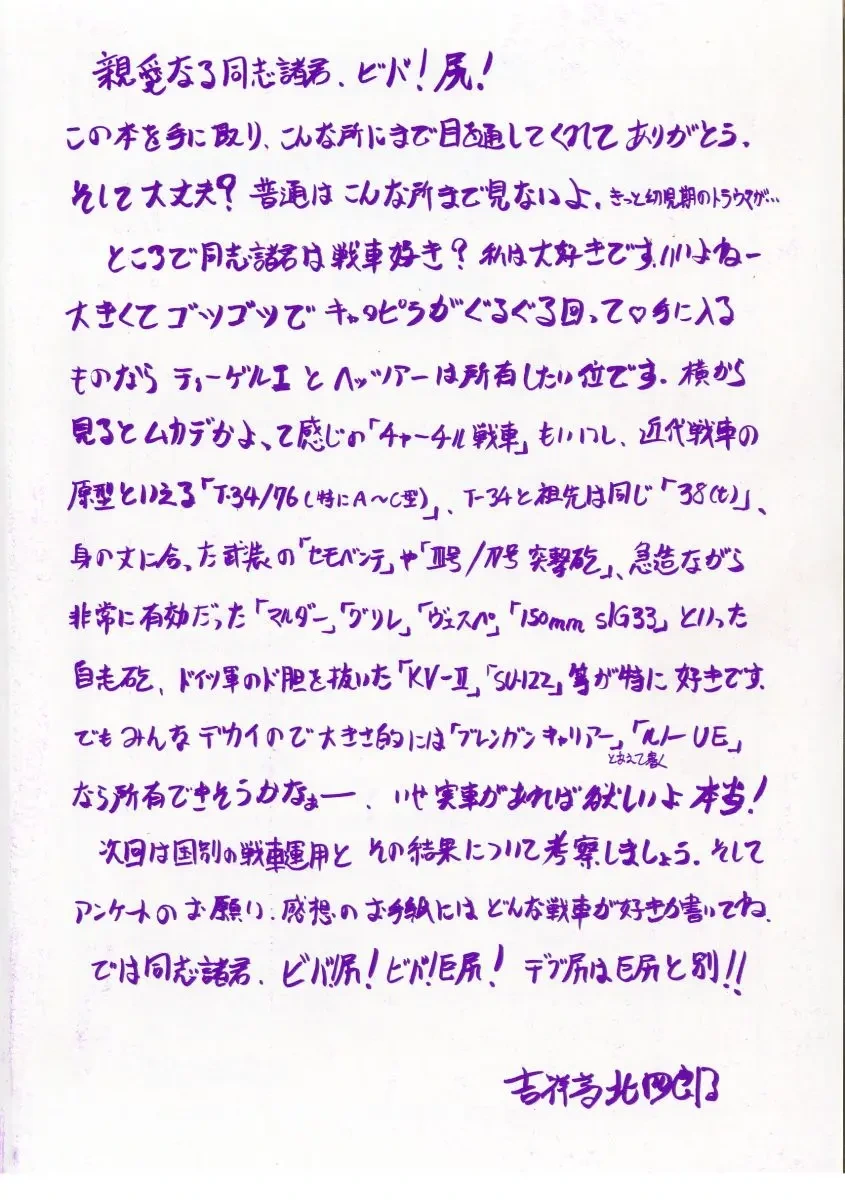 親愛なる同志諸君、ビバ!尻!
この本を手に取り、こんな所にまで目を通してくれてありがとう。
そして大丈夫?普通はこんな所まで見ないよ。きっと幼児期のトラウマが…
ところで同志諸君は戦車好き?私は大好きです。いいよねー
大きくてゴツゴツでキャタピラがぐるぐる回って♡手に入る
ものならティーゲルIとヘッツァーは所有したい位です。横から
見るとムカデかよ、って感じの「チャーチル戦車」もいいし、近代戦車の
原型といえる「T-34/76(特にA〜C型)」、T-34と祖先は同じ「38(t)」、
身の丈に合った武装の「セモベンテ」や「III号/IV号突撃砲」、急造ながら
非常に有効だった「マルダー」「グリレ」「ヴェスペ」「150mm sIG33」といった
自走砲、ドイツ軍のド胆を抜いた「KV-II」「SU-122」等が特に好きです。
でもみんなデカイので大きさ的には「ブレンガンキャリアー」「ルノーUE」
とあえて書く
なら所有できそうかなぁー、いせ実車があれば欲しいよ本当!
次回は国別の戦車運用とその結果について考察しましょう。そして
アンケートのお願い、感想のお手紙にはどんな戦車が好きか書いてね。
では同志諸君、ビバ!尻!ビバ!巨尻!デブ尻は巨尻と別!!
吉祥寺北四郎